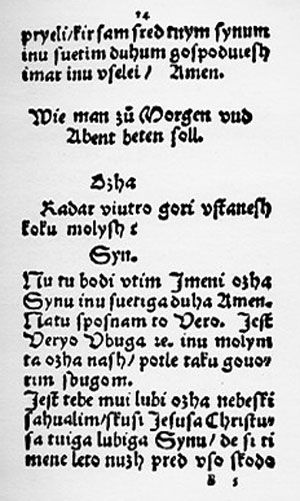 14
pryeli/kir sam sred tuym synum
inu suetim duhum gospoduiesh
imar inu vselei/ Amen.
Wie man zů Morgen vnd
Abent beten soll.
Ozha
Kadar viutro gori vstanesh
koku molysh?
Syn.
Nu tu bodi vtim Jmeni ozha
Synu inu suetiga duha Amen.
Natu sposnam to Vero. Jest
Veryo Vbuga ꝛc. inu molym
ta ozha nash/ potle taku gouo-
rim sbugom.
Jest tebe mui lubi ozha nebeski
sahualim/skusi Jesusa Christu-
sa tuiga lubiga Synu/ de si ti
mene leto nuzh pred vso skodo
B 5